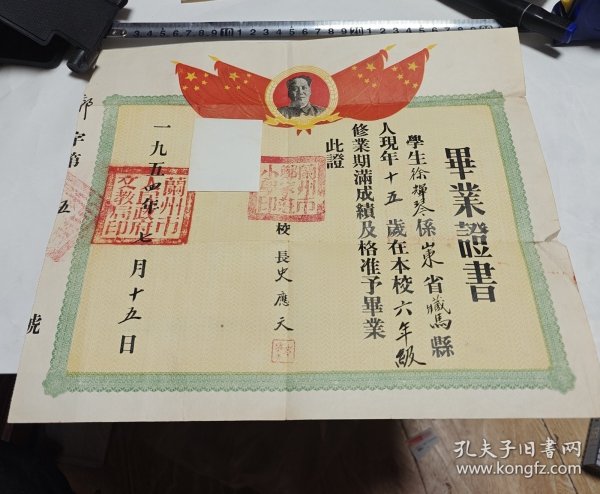 畢業證書
學生徐輝琴係山東省藏馬縣
人現年十五歲在本校六年級
修業期滿成績及格准予畢業
此證
校長史應天
一九五四年七月十五日
蘭州市
人民政府
文教局印
蘭州市
小學印
字第
五
號
3 4 5 6 7 8 9 10 1 2 3 4 5 6 7 8 9 20
孔夫子旧书网
www.kongfz.com